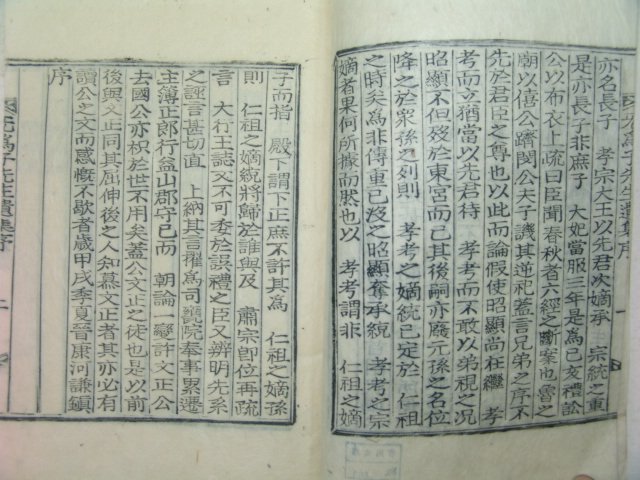 亦名長子　孝宗大王以先君次嫡承　宗統之重
是亦長子非庶子　大妃當服三年是爲己亥禮訟
公以布衣上疏曰臣聞春秋者六經之斷案也當之
朝以僖公躋閔公夫子譏其逆祀蓋言兄弟之序不
先於君臣之尊也以此而論假使昭顯尚在繼　孝
考而立猶當以先君待　孝考而不敢以弟視之况
昭顯不但殁於東宮而已其後嗣亦廢元孫之名位
降之於衆孫之列則　孝考之嫡統已定於　仁祖
之時矣爲非傳重已沒之昭顯奪承統　孝考之宗
嫡者果何所據而然也　孝考謂非　仁祖之嫡
子而指　殿下謂下正庶不許其爲　仁祖之嫡孫
則　仁祖之嫡統將歸於誰與及　肅宗卽位再疏
言　大行王誌文不可委於誤禮之臣又辨明先系
之誣言甚切直　上納其言擢爲司甕院奉事累遷
主簿正郎行益山郡守已而　朝論一變許文正公
去國公亦枳於世不用矣蓋公文正之徒也是以前
後與文正同其屈伸後之人知慕文正者其亦必有
讀公之文而感慨不歇者歲甲戌季夏晉康河謙鎭
序